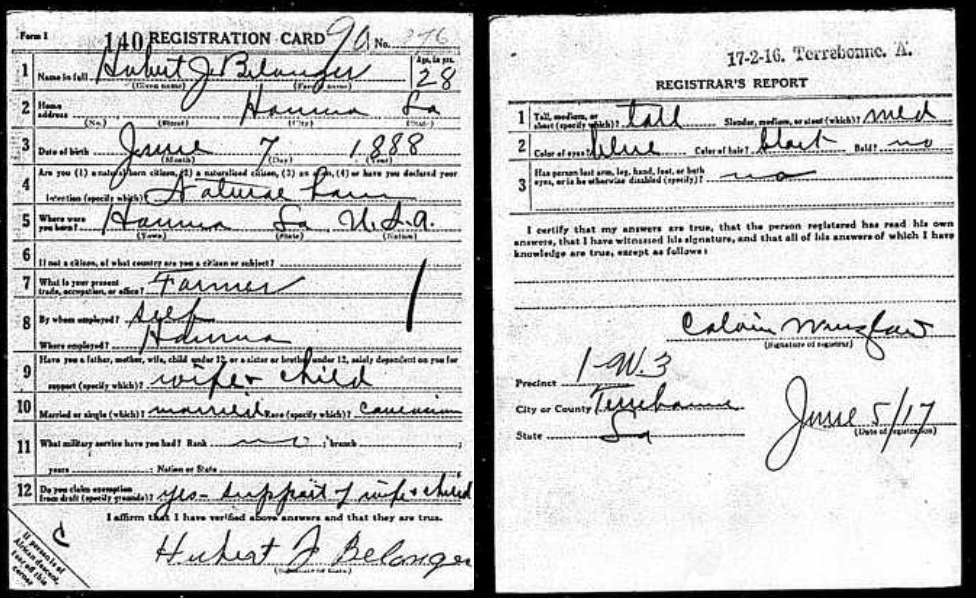 Form 1
140 REGISTRATION CARD 90 No. 376
1 Name in full Hubert J Belanger Age, in yrs. 28
(Given name) (Family name)
2 Home address Houma La
(No.) (Street) (City) (State)
3 Date of birth June 7 1888
(Month) (Day) (Year)
4 Are you (1) a natural born citizen, (2) a naturalized citizen, (3) an alien, (4) or have you declared your
intention (specify which)? Natural Born
5 Where were you born? Houma La U.S.A.
(Town) (State) (Nation)
6 If not a citizen, of what country are you a citizen or subject?
7 What is your present trade, occupation, or office? Farmer
8 By whom employed? self
Where employed? Houma
9 Have you a father, mother, wife, child under 12, or a sister or brother under 12, solely dependent on you for
support (specify which)? wife + child
10 Married or single (which)? married Race (specify which)? Caucasian
11 What military service have you had? Rank no ; branch ;
years ; Nation or State
12 Do you claim exemption from draft (specify grounds)? yes - support of wife + child
I affirm that I have verified above answers and that they are true.
Hubert J Belanger
(Signature or mark)
C
If person is of African descent, tear off this corner
17-2-16. Terrebonne. A.
REGISTRAR'S REPORT
1 Tall, medium, or short (specify which)? tall Slender, medium, or stout (which)? med
2 Color of eyes? blue Color of hair? black Bald? no
3 Has person lost arm, leg, hand, foot, or both
eyes, or is he otherwise disabled (specify)? no
I certify that my answers are true, that the person registered has read his own
answers, that I have witnessed his signature, and that all of his answers of which I have
knowledge are true, except as follows:
Calvin
(Signature of registrar)
Precinct 1-W.3
City or County Terrebonne
State La
June 5/17
(Date of registration)